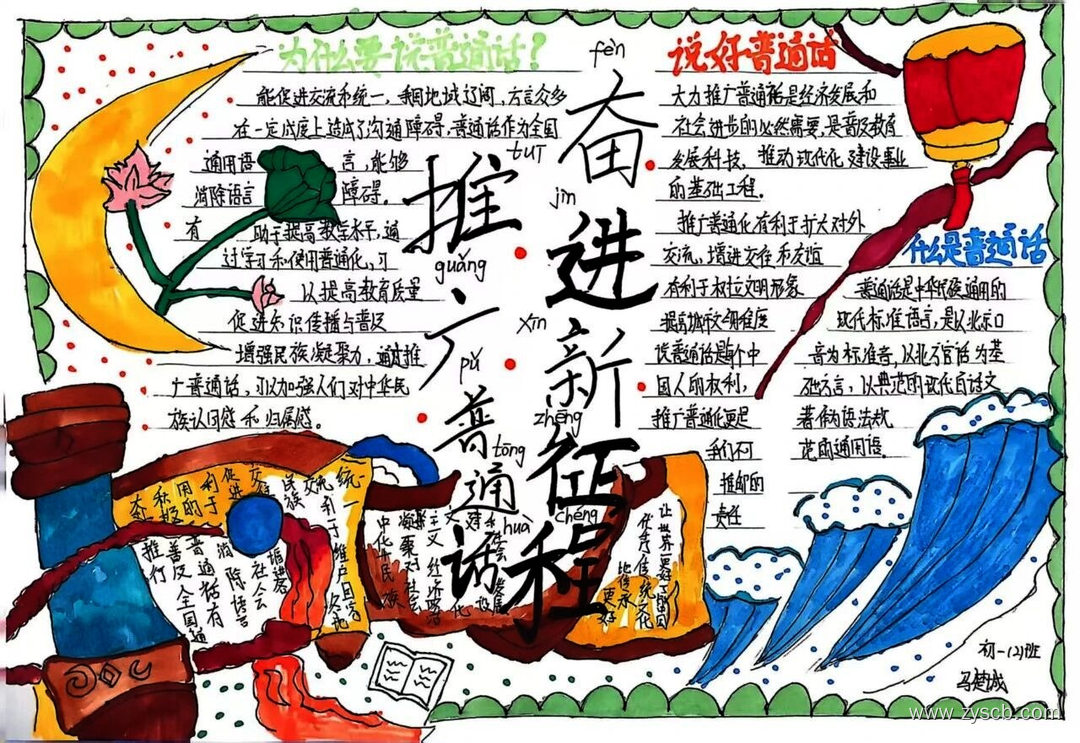 为什么要说普通话？
能促进交流和统一，我国地域辽阔，方言众多
在一定成度上造成了沟通障碍，普通话作为全国
通用语言，能够
消除语言障碍。
有助于提高教学水平，通
过学习和使用普通化，可
以提高教育质量
促进知识传播与普及
增强民族凝聚力，通过推
广普通话，可以加强人们对中华民
族认同感和归属感。
tuī
guǎng
pǔ
tōng
huà
推广普通话
fèn
jìn
xīn
zhēng
chéng
奋进新征程
说好普通话
大力推广普通话是经济发展和
社会进步的必然需要，是普及教育
发展科技、推动现代化建设事业
的基础工程。
推广普通化有利于扩大对外
交流，增进交往和友谊
有利于树立文明形象
提高城市文明维度
说普通话是每个中
国人的权利，
推广普通化更是
我们不可
推卸的
责任
什么是普通话
普通话是中华民族通用的
现代标准语言，是以北京口
音为标准音，以北方官话为基
础方言，以典范的现代白话文
著作为语法规
范的通用语。
推行
普及全国通
普通话有
消除语言
增进
社会
民族
交流
统一
有利于维护国家
中化民族
主义
让世界更好了解中国
优秀传统文化
比传承
更好
初一(2)班
马楚城
www.zyscb.com